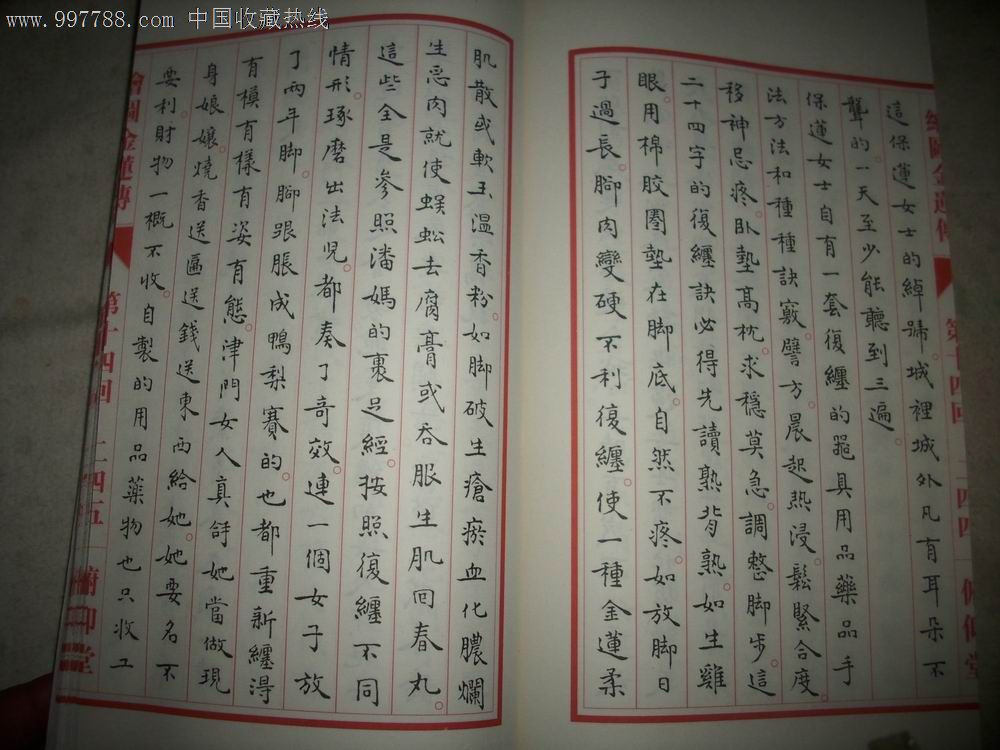 www.997788.com 中国收藏热线
這保蓮女士的綽號。城裡城外凡有耳朵不
聾的。一天至少能聽到三遍。
保蓮女士自有一套復纏的器具用品藥品手
法方法和種種訣竅。譬方晨起熱浸。鬆緊合度。
移神忌疼。臥墊高枕。求穩莫急。調整脚步。這
二十四字的復纏訣必得先讀熟背熟。如生雞
眼。用棉胶圈墊在脚底。自然不疼。如放脚日
子過長。腳肉變硬不利復纏。使一種金蓮柔
繪圖金蓮傳 第十四回 二四四 俯仰堂
肌散或軟玉溫香粉。如脚破生瘡瘀血化膿爛
生惡肉就使蜈蚣去腐膏或吞服生肌回春丸。
這些全是參照潘媽的裹足經。按照復纏不同
情形。琢磨出法兒。都奏了奇效。連一個女子放
了兩年脚。腳跟脹成鴨梨賽的。也都重新纏得
有模有樣有姿有態。津門女人真拜她當做現
身娘孃。燒香送匾送錢送東西給她。她要名不
要利。財物一概不收。自製的用品藥物也只收工
繪圖金蓮傳 第十四回 二四五 俯仰堂